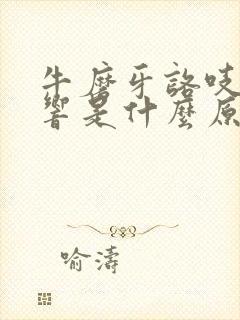 牛磨牙詻吱
響是什麼原
喻濤